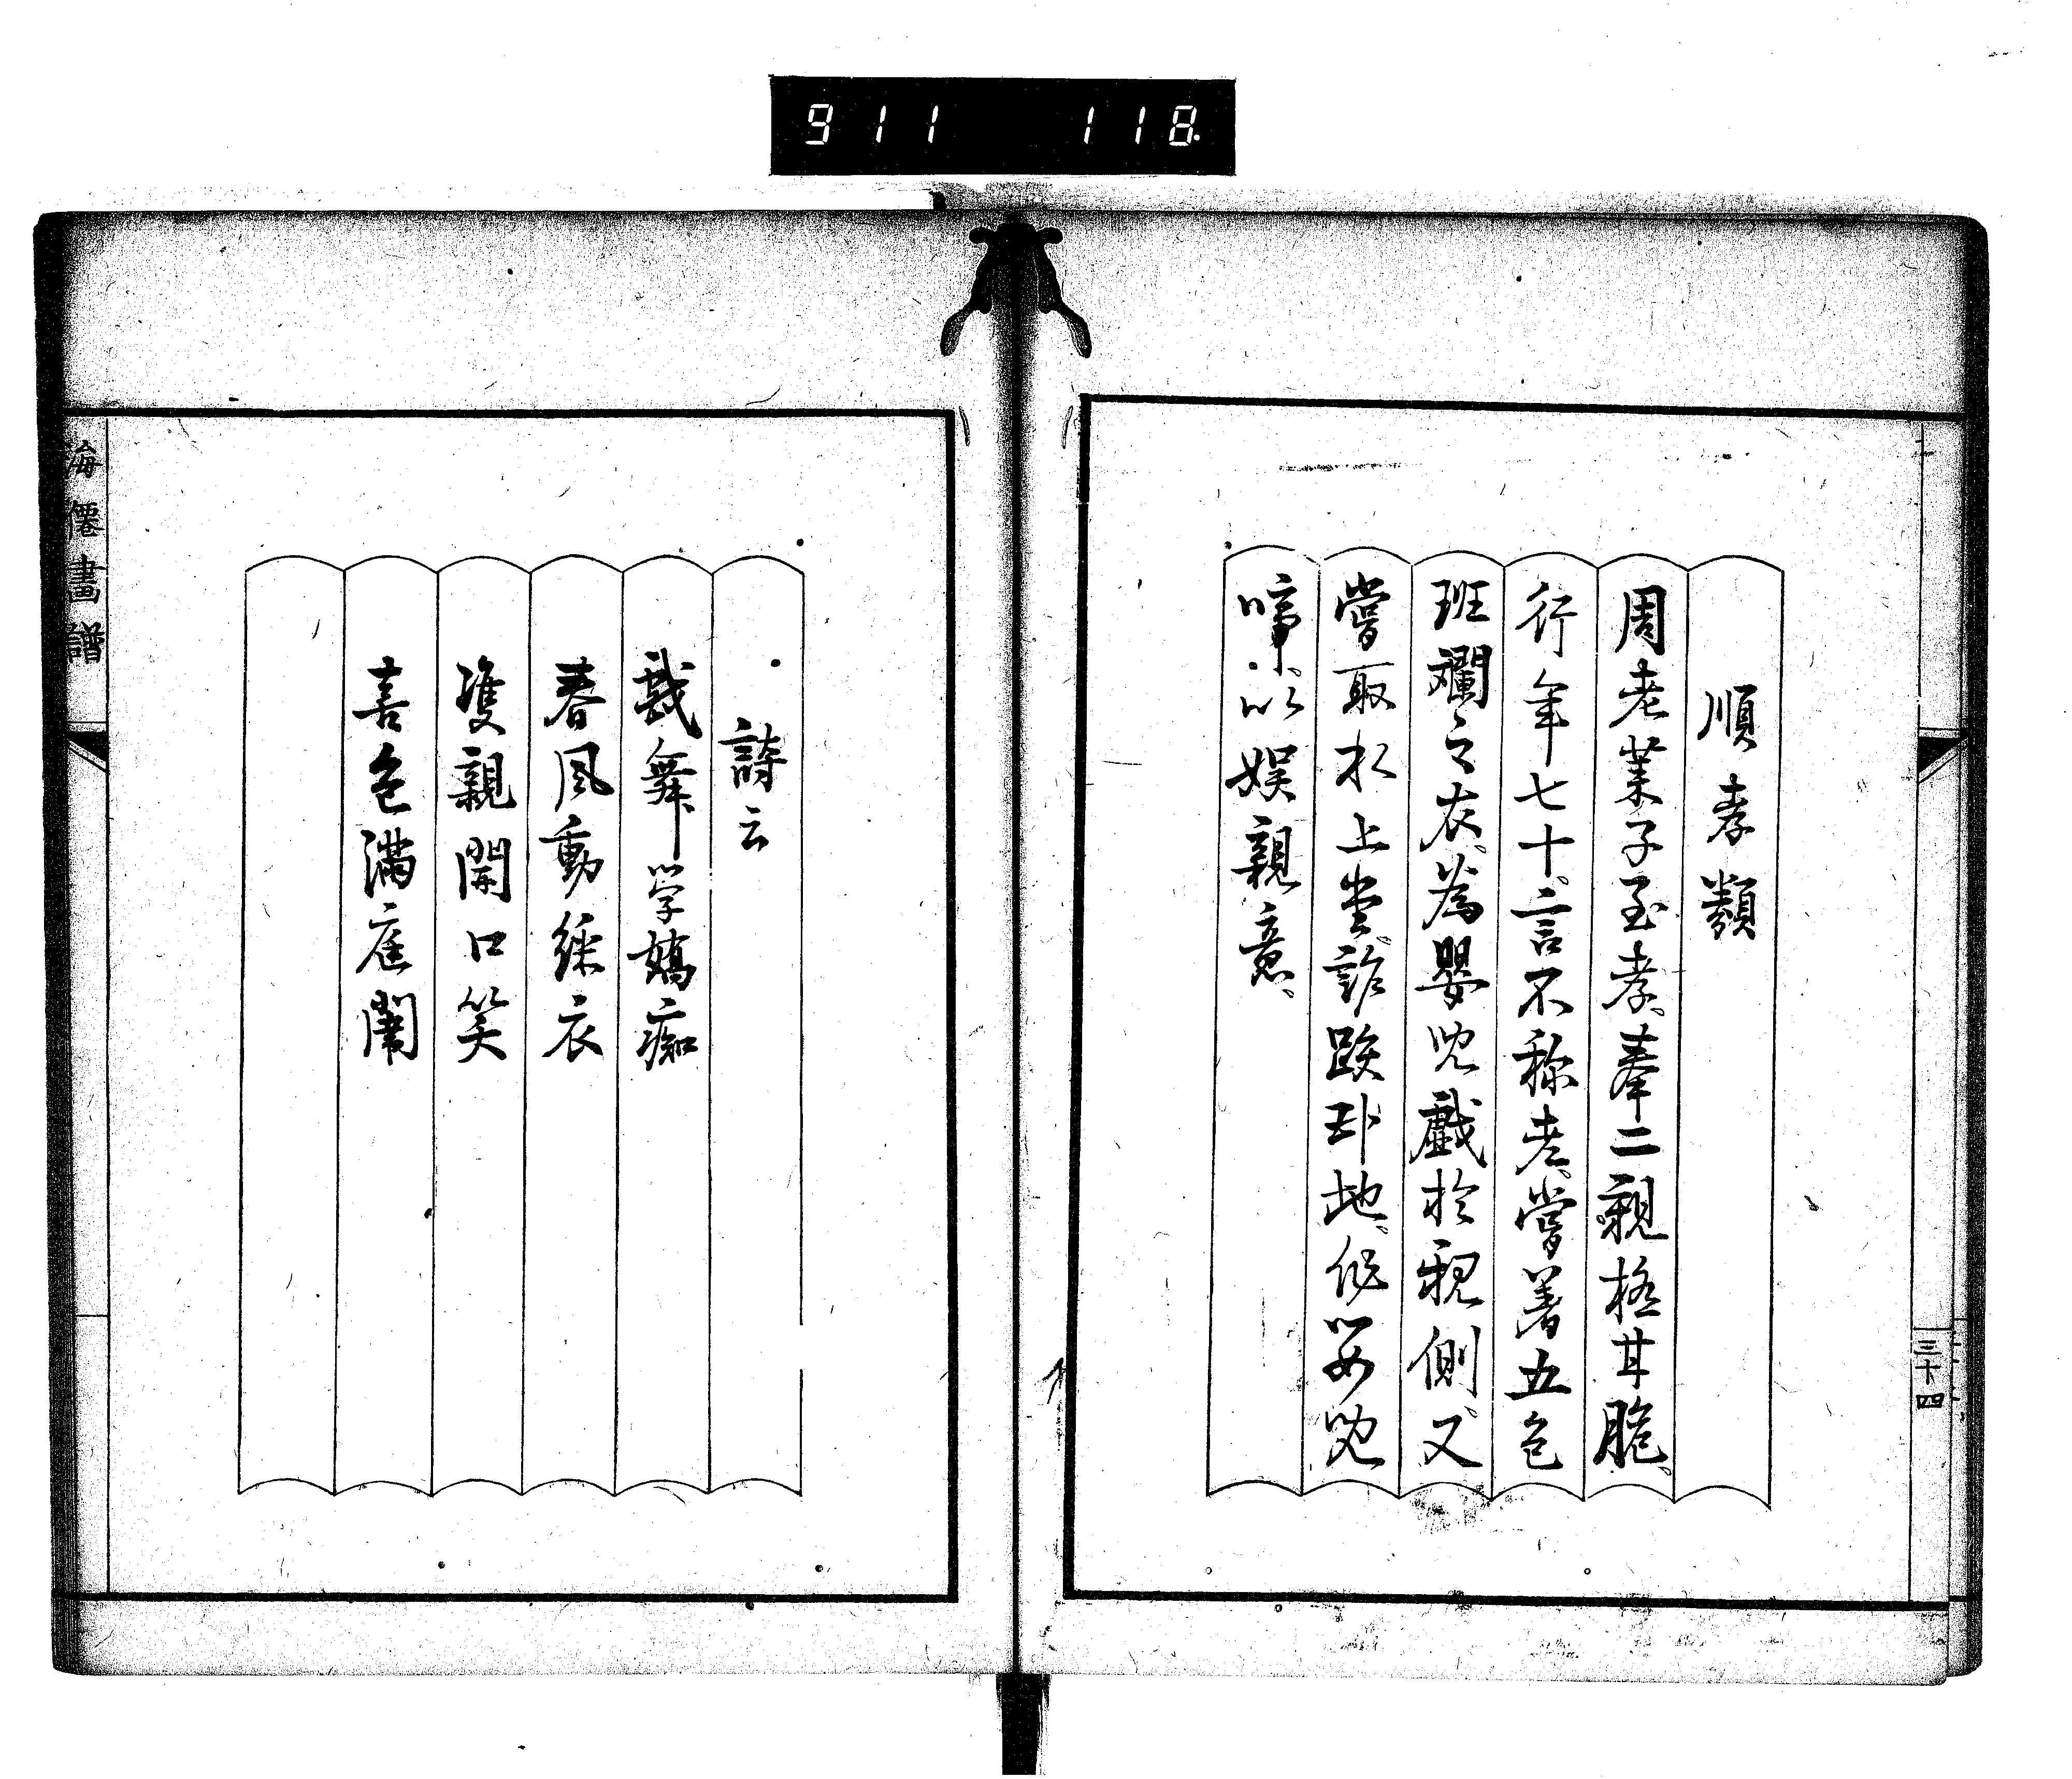 911 118
順孝類
周老莱子至孝。奉二親極甘脆。
行年七十。言不称老。嘗著五色
班斕之衣。為嬰児戯於親側。又
嘗取水上堂。詐跌卧地。作嬰児
啼。以娯親意。
三十四
詩云
戯舞学嬌痴
春風動綵衣
雙親開口笑
喜色満庭闈
海僊畫譜